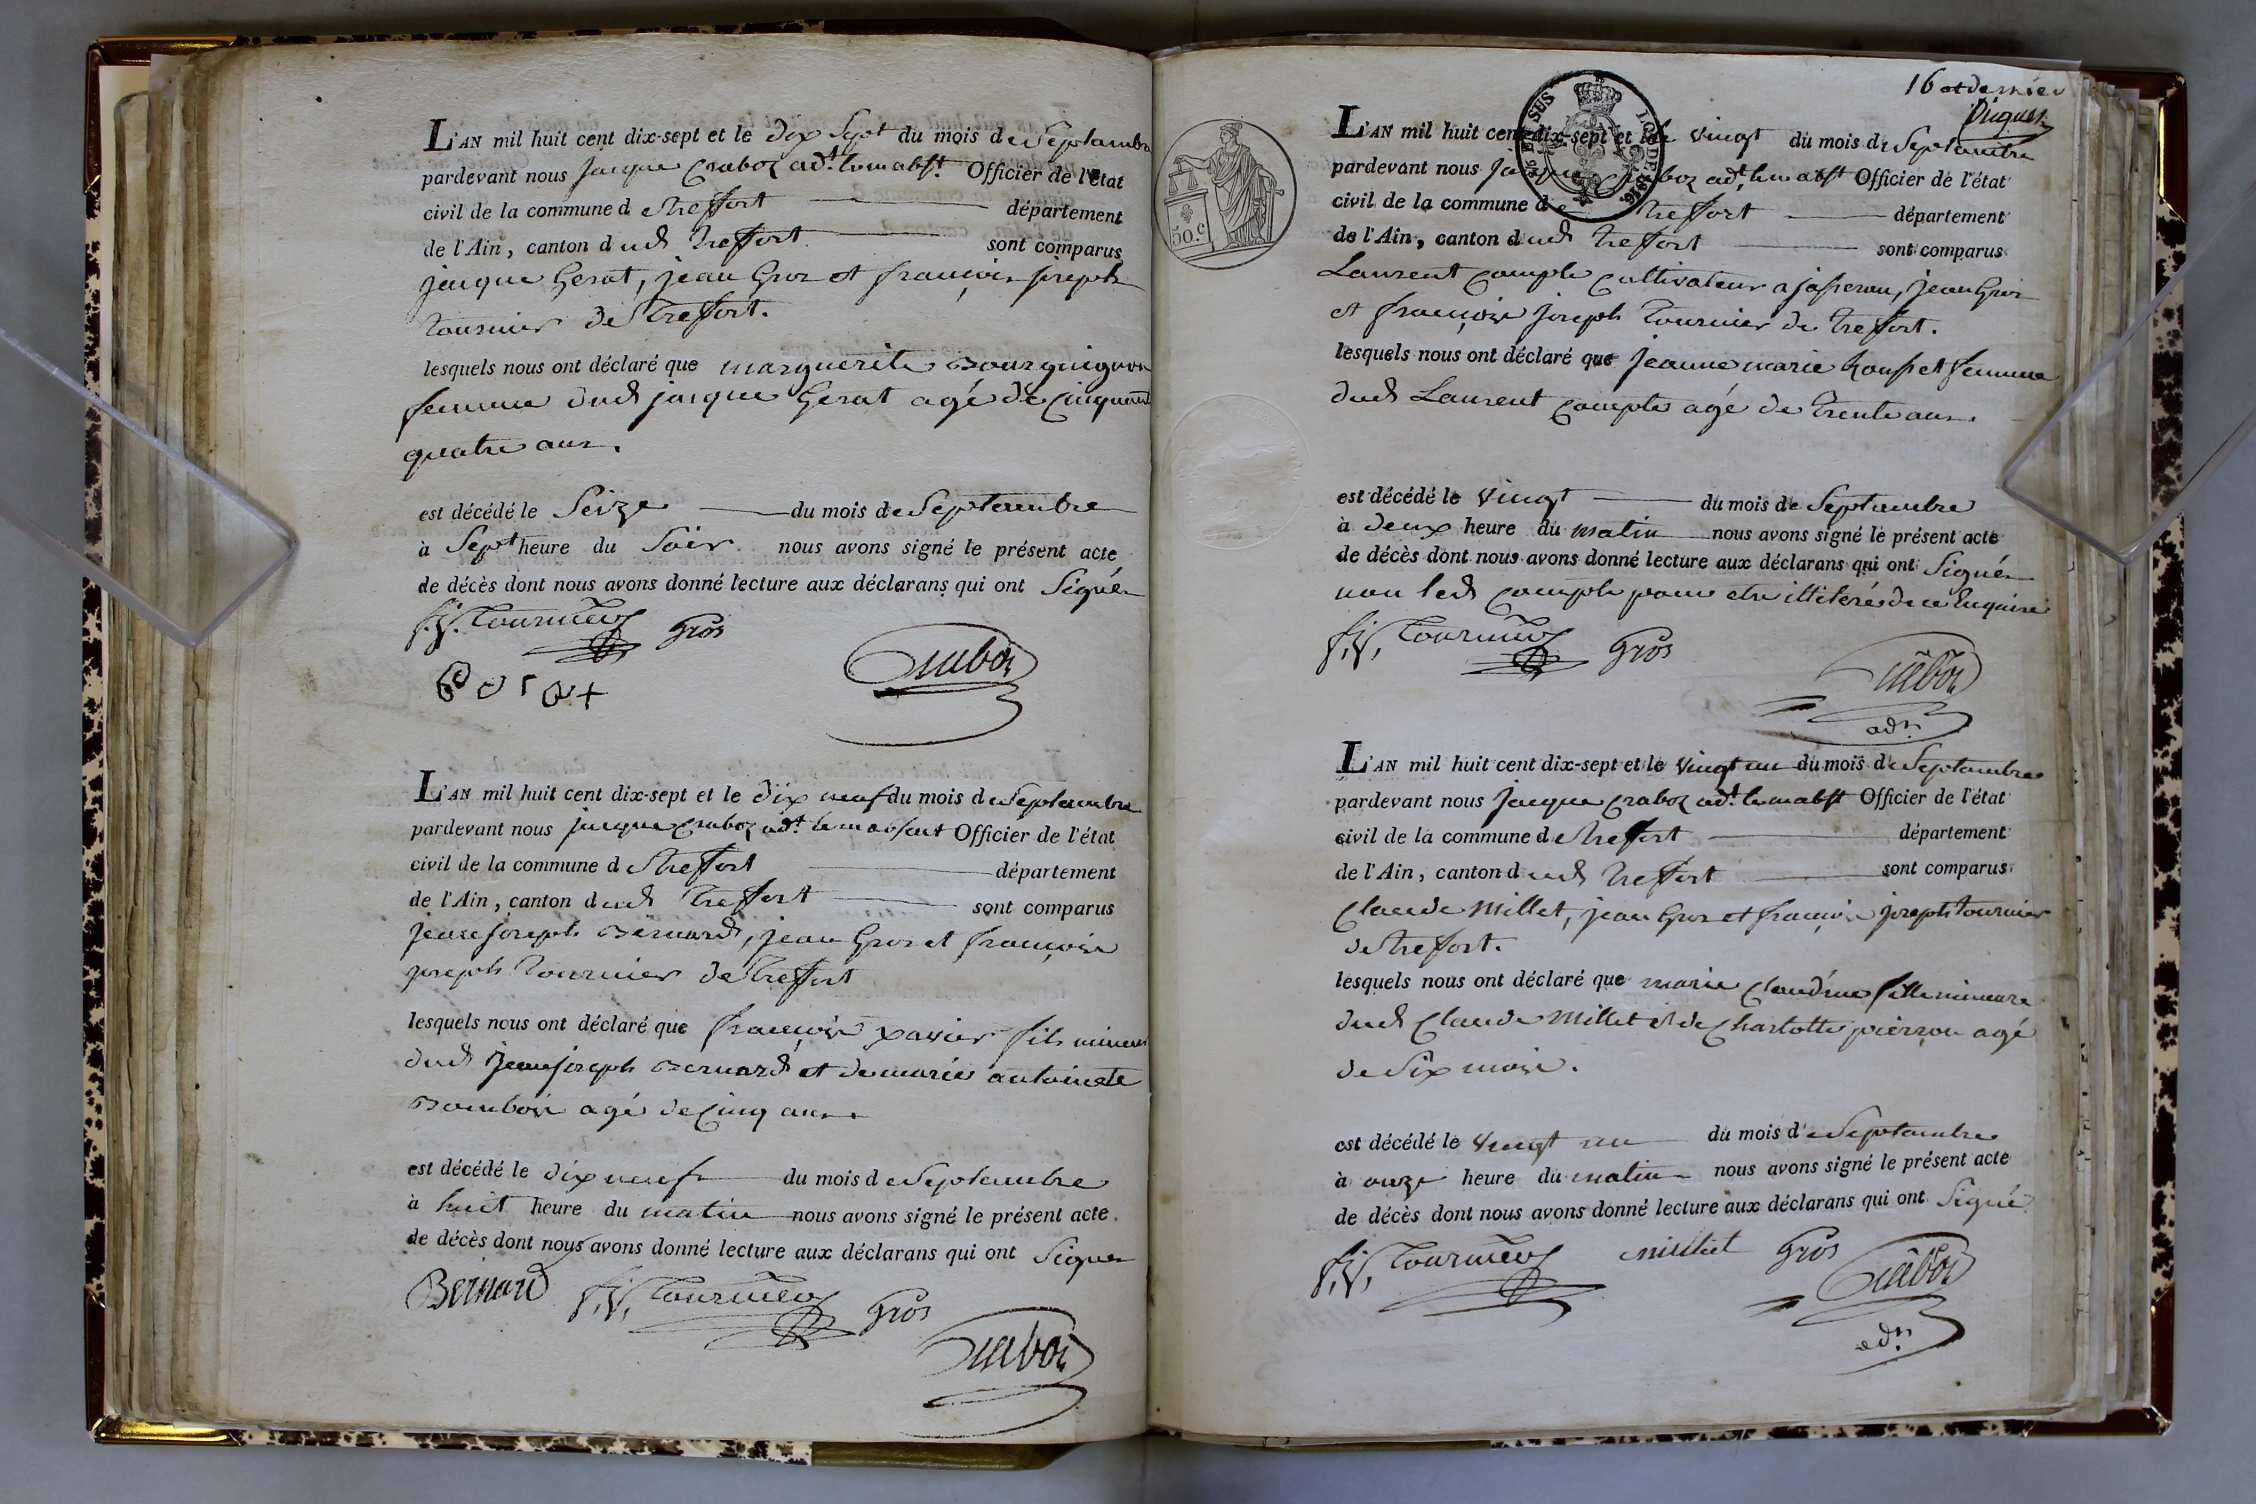 L'AN mil huit cent dix-sept et le dix Sept du mois de Septambre
pardevant nous jacque Craboz adt. le m abst. Officier de l'état
civil de la commune de treffort département
de l'Ain, canton dud treffort sont comparus
jacque Gerat, jean Gros et françois joseph
tournier de treffort.
lesquels nous ont déclaré que marguerite Bourguignon
femme dud jacque Gerat agé de Cinquante
quatre ans.
est décédé le Seize du mois de Septembre
à Sept heure du Soir nous avons signé le présent acte
de décès dont nous avons donné lecture aux déclarans qui ont Signés
f. j. Tournier Gros
Craboz
L'AN mil huit cent dix-sept et le dix neuf du mois de Septembre
pardevant nous jacque Craboz adt. le m absent Officier de l'état
civil de la commune de treffort département
de l'Ain, canton dud treffort sont comparus
jean joseph Bernard, jean Gros et françois
joseph tournier de treffort
lesquels nous ont déclaré que françois xavier fils mineur
dud jean joseph Bernard et de marie antoinete
agé de Cinq ans.
est décédé le dix neuf du mois de Septembre
à huit heure du matin nous avons signé le présent acte
de décès dont nous avons donné lecture aux déclarans qui ont Signer
Bernard f. j. Tournier Gros
Craboz
16 et dernier
LOI DE 1816.
50.c
L'AN mil huit cent dix-sept et le vingt du mois de Septambre
pardevant nous jacque Craboz adt. le m abst Officier de l'état
civil de la commune de treffort département
de l'Ain, canton dud treffort sont comparus
Laurent Comple Cultivateur a jasseron, jean Gros
et françois joseph tournier de treffort.
lesquels nous ont déclaré que jeanne marie Rousset femme
dud Laurent Comple agé de trente ans.
est décédé le vingt du mois de Septembre
à deux heure du matin nous avons signé le présent acte
de décès dont nous avons donné lecture aux déclarans qui ont Signés
non led Comple pour etre illiteré de ce Enquis
f. j. Tournier Gros
Craboz
adt.
L'AN mil huit cent dix-sept et le vingt un du mois de Septambre
pardevant nous jacque Craboz adt. le m abst Officier de l'état
civil de la commune de treffort département
de l'Ain, canton dud treffort sont comparus
Claude Millet, jean Gros et françois joseph tournier
de treffort.
lesquels nous ont déclaré que marie Claudine fille mineure
dud Claude Millet et de Charlotte pierron agé
de Six mois.
est décédé le vingt un du mois de Septembre
à onze heure du matin nous avons signé le présent acte
de décès dont nous avons donné lecture aux déclarans qui ont Signé
f. j. Tournier millet Gros
Craboz
adt.